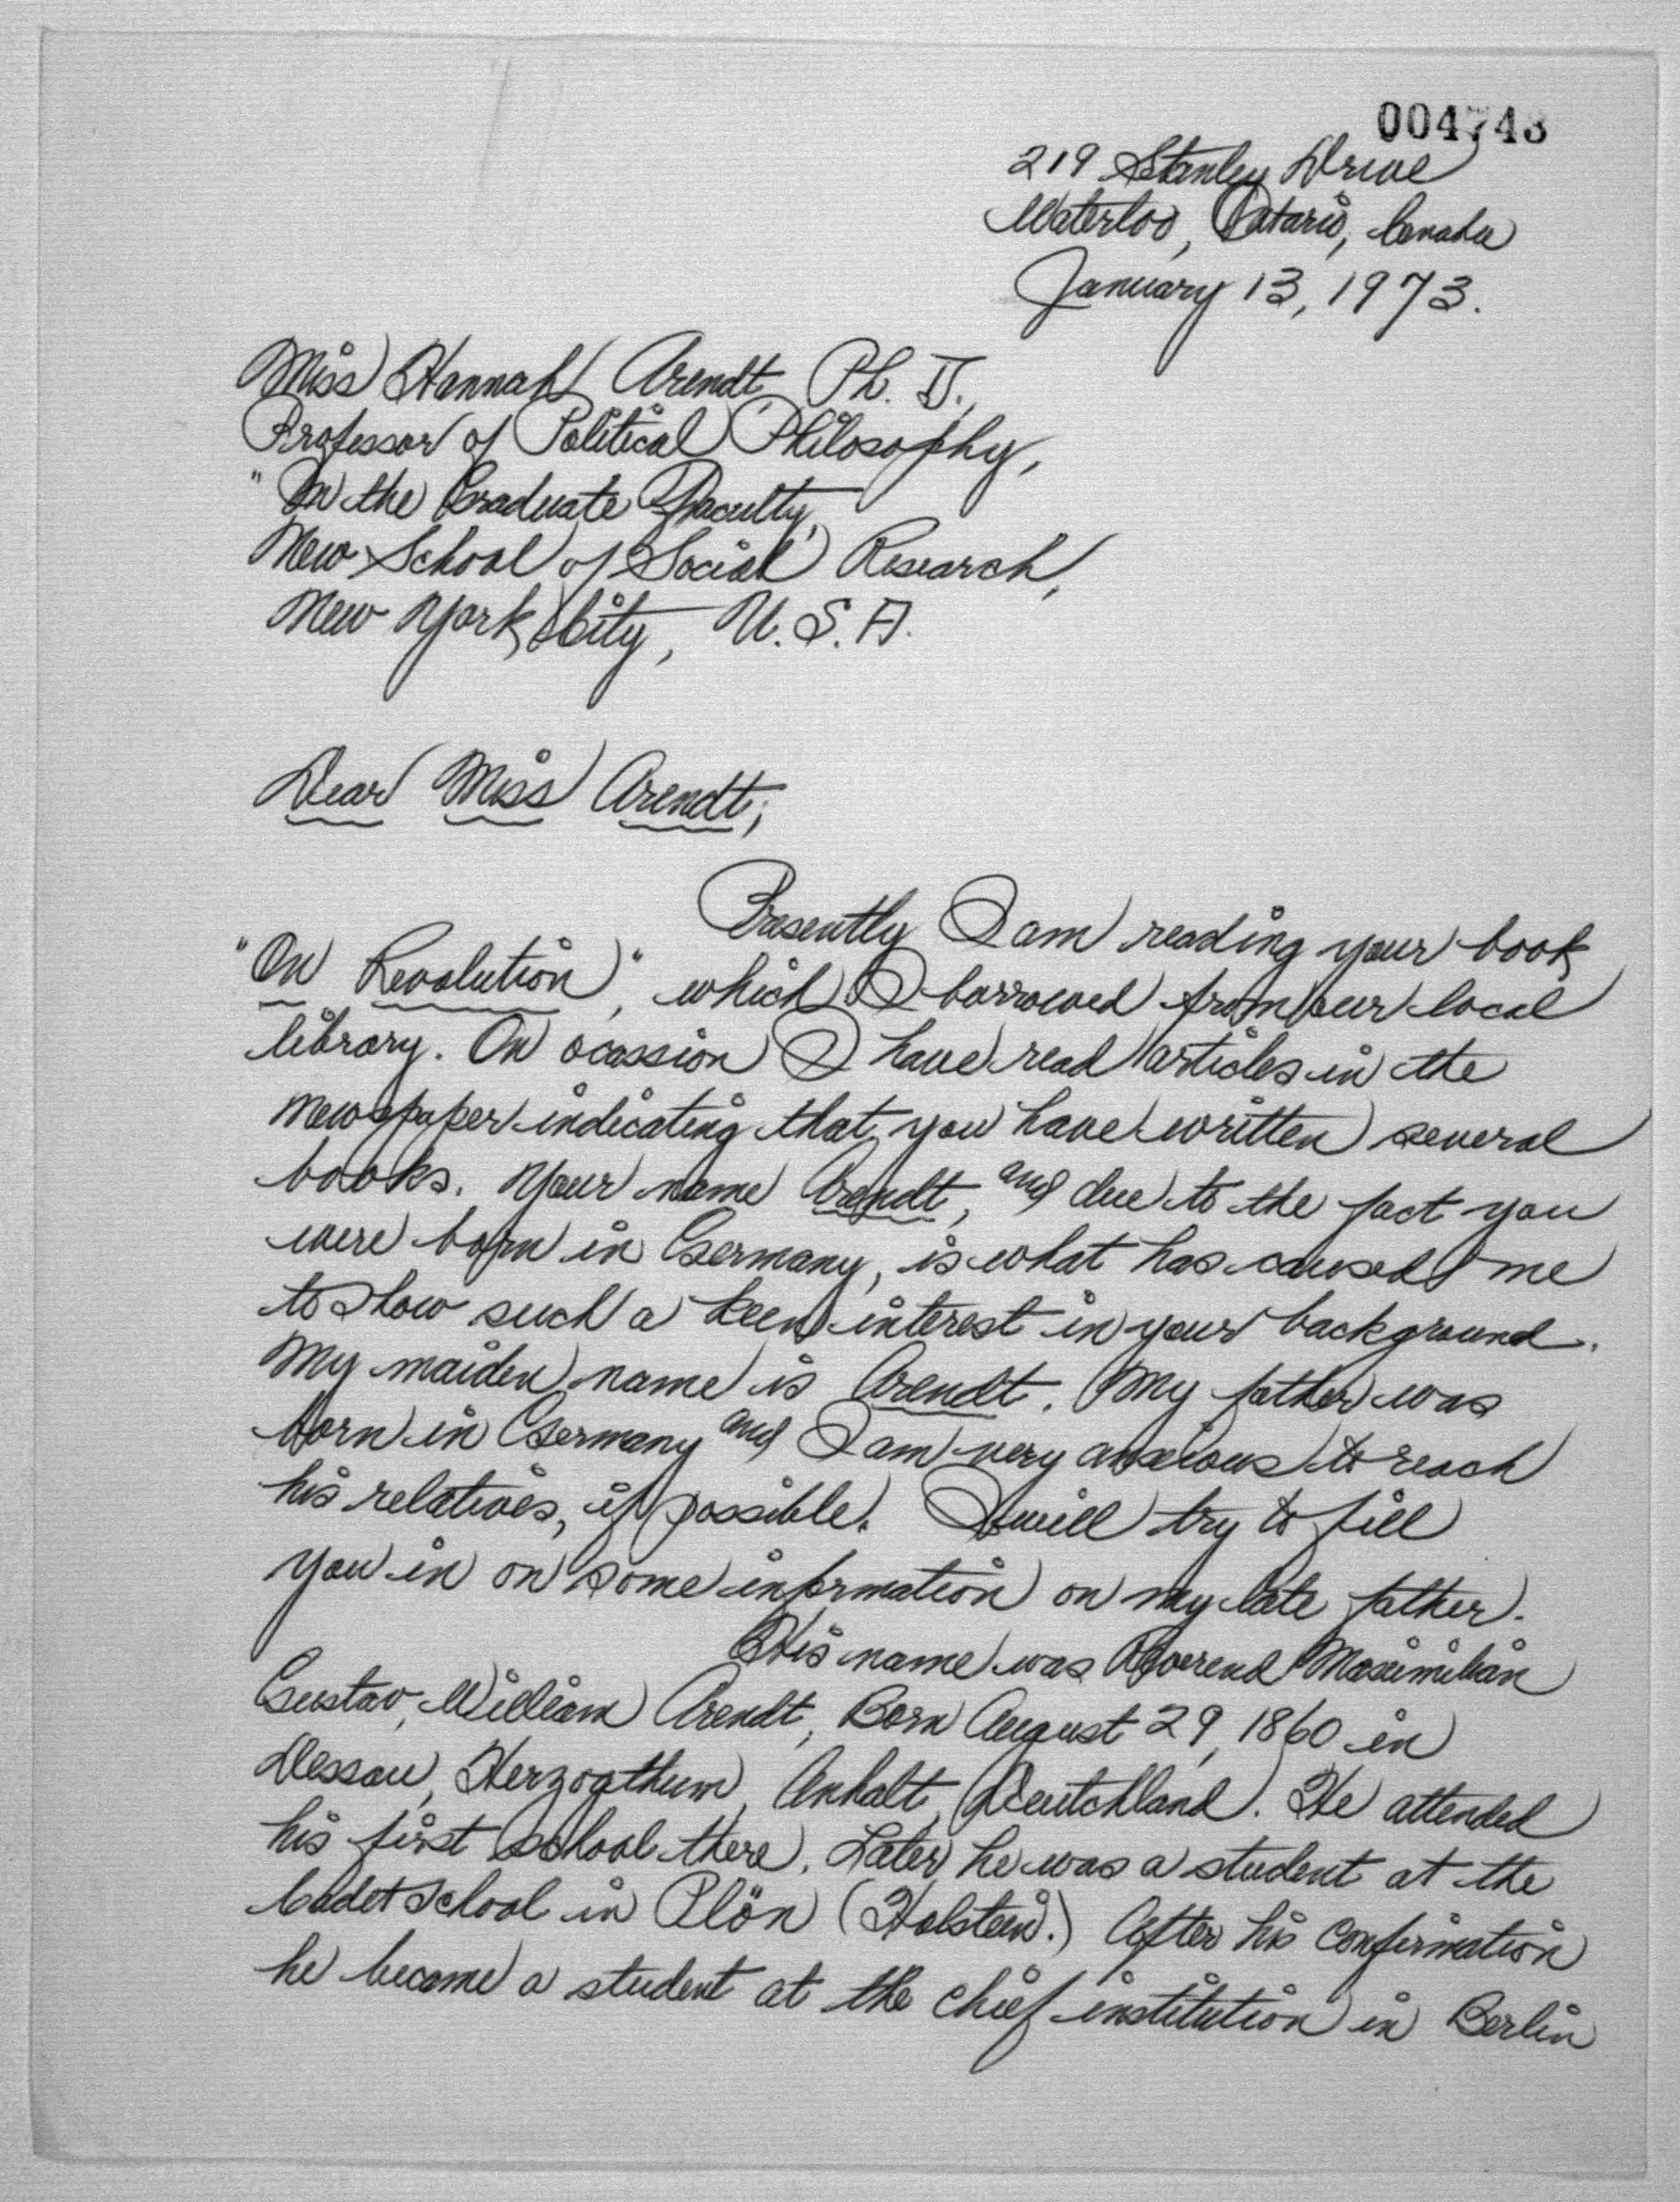 004743
219 Stanley Drive
Waterloo, Ontario, Canada
January 13, 1973.
Miss Hannah Arendt, Ph. D.,
Professor of Political Philosophy,
" On the Graduate Faculty,
New School of Social Research,
New York City, U. S. A.
Dear Miss Arendt;
Presently I am reading your book
"On Revolution", which I borrowed from our local
library. On ocassion I have read articles in the
newspaper indicating that you have written several
books. Your name Arendt, and due to the fact you
were born in Germany, is what has caused me
to show such a keen interest in your background.
My maiden name is Arendt. My father was
born in Germany and I am very anxious to reach
his relatives, if possible. I will try to fill
you in on some information on my late father.
His name was Reverend Maximilian
Gustav, William Arendt, Born August 29, 1860 in
Dessau, Herzogthum, Anhalt, Deutchland. He attended
his first school there. Later he was a student at the
Cadet School in Plön (Holstein.) After his confirmation
he became a student at the chief institution in Berlin